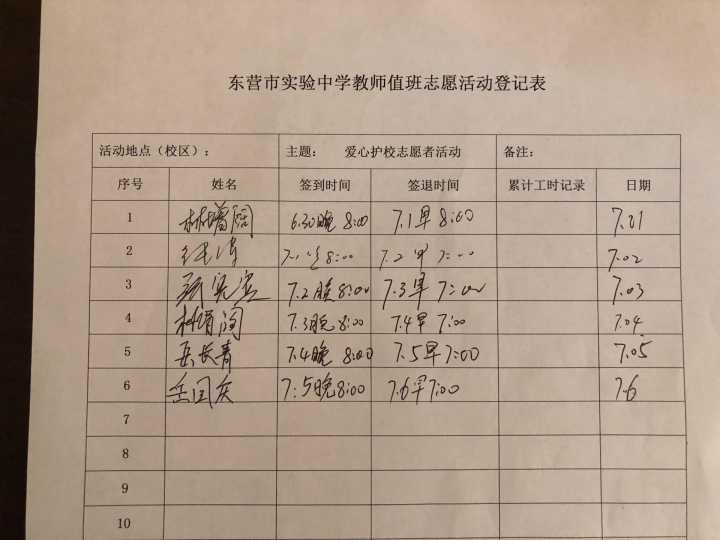 东营市实验中学教师值班志愿活动登记表
活动地点（校区）： 主题： 爱心护校志愿者活动 备注：
序号 姓名 签到时间 签退时间 累计工时记录 日期
1 林增阔 6.30晚 8:00 7.1早 8:00 7.01
2 7.1 8:00 7.2早 7:00 7.02
3 7.2晚 8:00 7.3早 7:00 7.03
4 林增阔 7.3晚 8:00 7.4早 7:00 7.04
5 岳长青 7.4晚 8:00 7.5早 7:00 7.05
6 岳国庆 7:5晚 8:00 7.6早 7:00 7.6
7
8
9
10